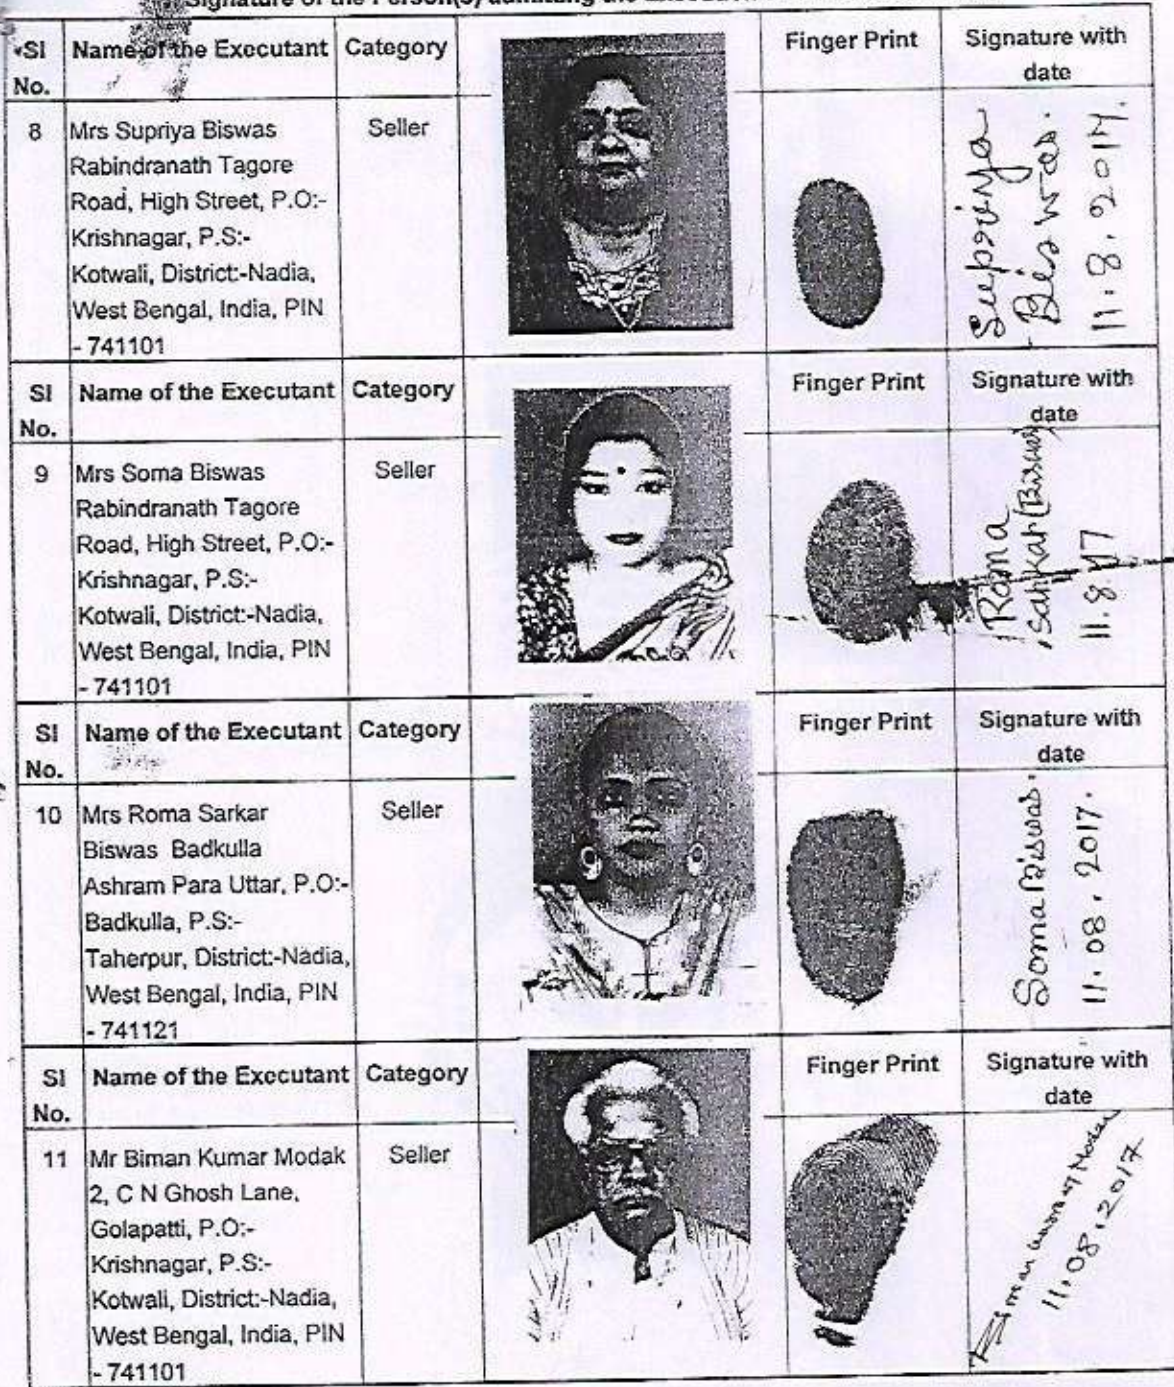 Signature of the Person(s) admitting the Execution
Sl No. Name of the Executant Category Finger Print Signature with date
8 Mrs Supriya Biswas
Rabindranath Tagore
Road, High Street, P.O:-
Krishnagar, P.S:-
Kotwali, District:-Nadia,
West Bengal, India, PIN
- 741101
Seller
Supriya
Biswas.
11.8.2017.
Sl No. Name of the Executant Category Finger Print Signature with date
9 Mrs Soma Biswas
Rabindranath Tagore
Road, High Street, P.O:-
Krishnagar, P.S:-
Kotwali, District:-Nadia,
West Bengal, India, PIN
- 741101
Seller
Roma
Sarkar (Biswas)
11.8.17
Sl No. Name of the Executant Category Finger Print Signature with date
10 Mrs Roma Sarkar
Biswas Badkulla
Ashram Para Uttar, P.O:-
Badkulla, P.S:-
Taherpur, District:-Nadia,
West Bengal, India, PIN
- 741121
Seller
Soma Biswas.
11.08.2017.
Sl No. Name of the Executant Category Finger Print Signature with date
11 Mr Biman Kumar Modak
2, C N Ghosh Lane,
Golapatti, P.O:-
Krishnagar, P.S:-
Kotwali, District:-Nadia,
West Bengal, India, PIN
- 741101
Seller
Biman Kumar Modak
11.08.2017